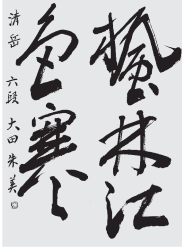 楓林江
色寒
清岳 六段 大田朱美